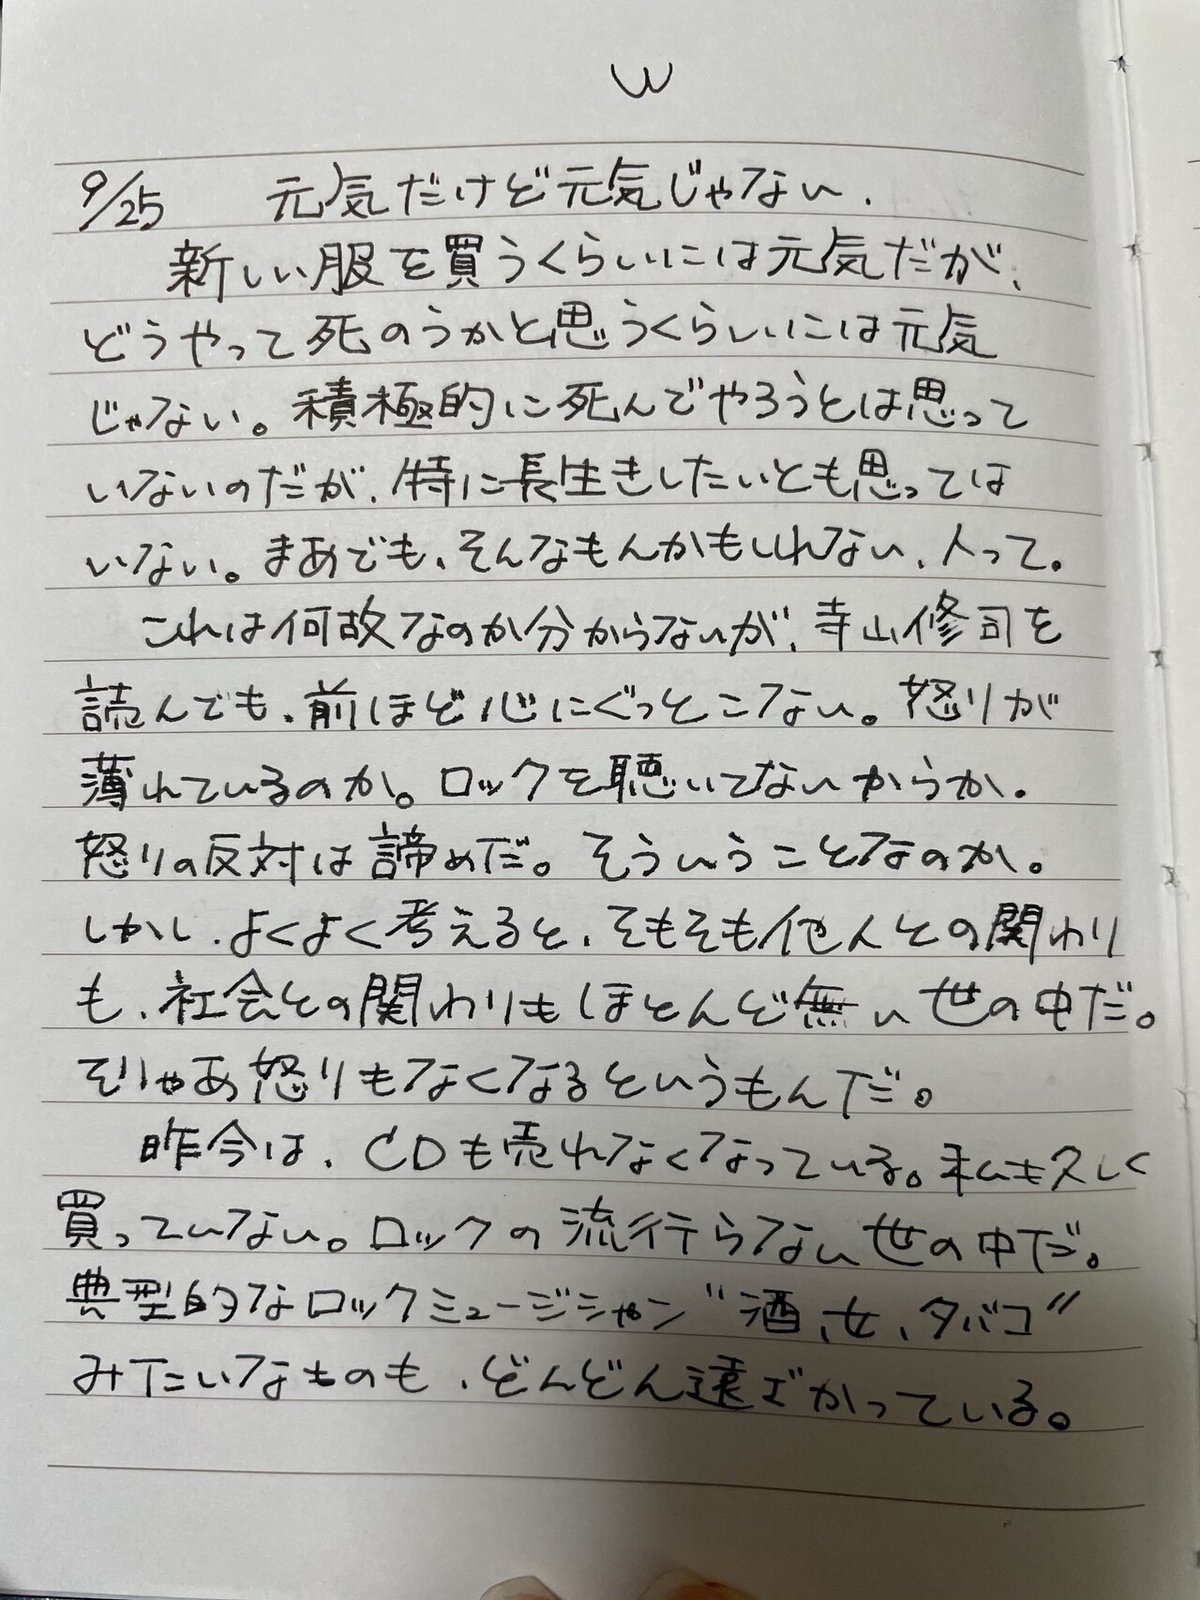 W
9/25 元気だけど元気じゃない、
新しい服を買うくらいには元気だが、
どうやって死のうかと思うくらいには元気
じゃない。積極的に死んでやろうとは思って
いないのだが、特に長生きしたいとも思っては
いない。まあでも、そんなもんかもしれない、人って。
これは何故なのか分からないが、寺山修司を
読んでも、前ほど心にぐっとこない。怒りが
薄れているのか。ロックを聴いてないからか。
怒りの反対は諦めだ。そういうことなのか。
しかし、よくよく考えると、そもそも他人との関わり
も、社会との関わりもほとんど無い世の中だ。
そりゃあ怒りもなくなるというもんだ。
昨今は、CDも売れなくなっている。私も久しく
買っていない。ロックの流行らない世の中だ。
典型的なロックミュージシャン"酒、女、タバコ"
みたいなものも、どんどん遠ざかっている。